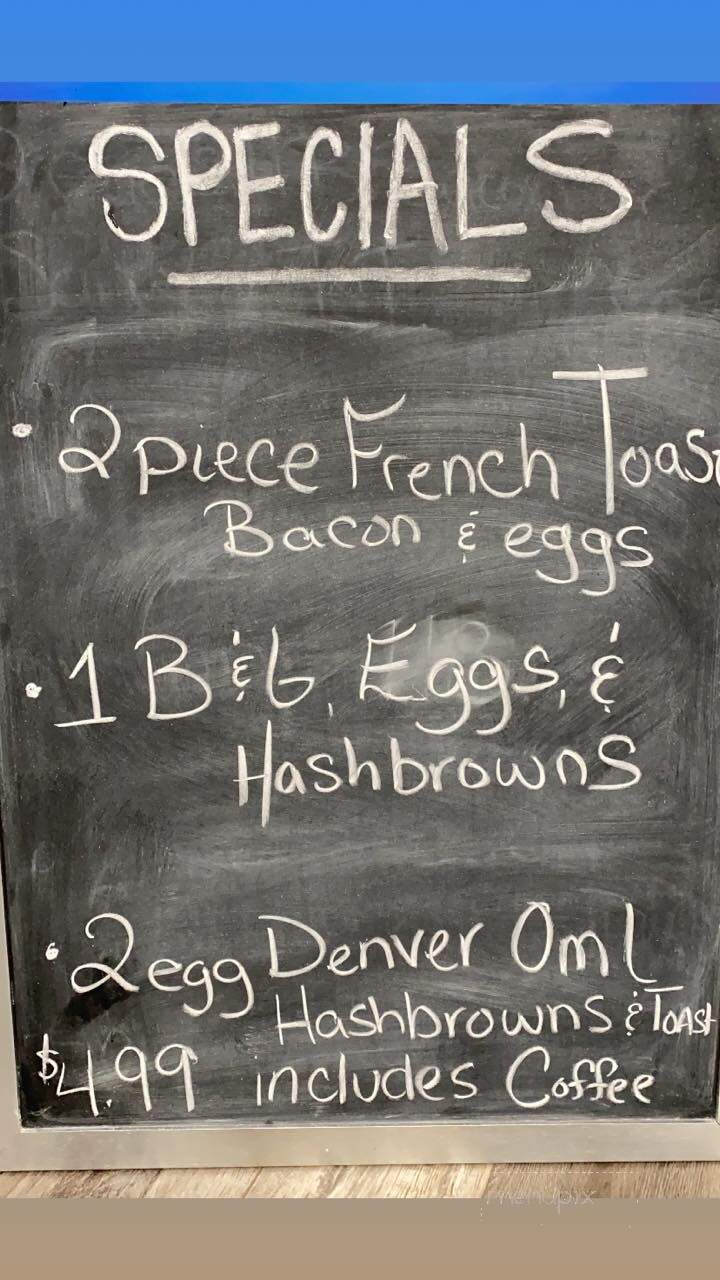 SPECIALS
• 2 piece French Toast
Bacon & eggs
• 1 B & G, Eggs, &
Hashbrowns
• 2 egg Denver Oml
Hashbrowns & Toast
$4.99 includes Coffee
menupix